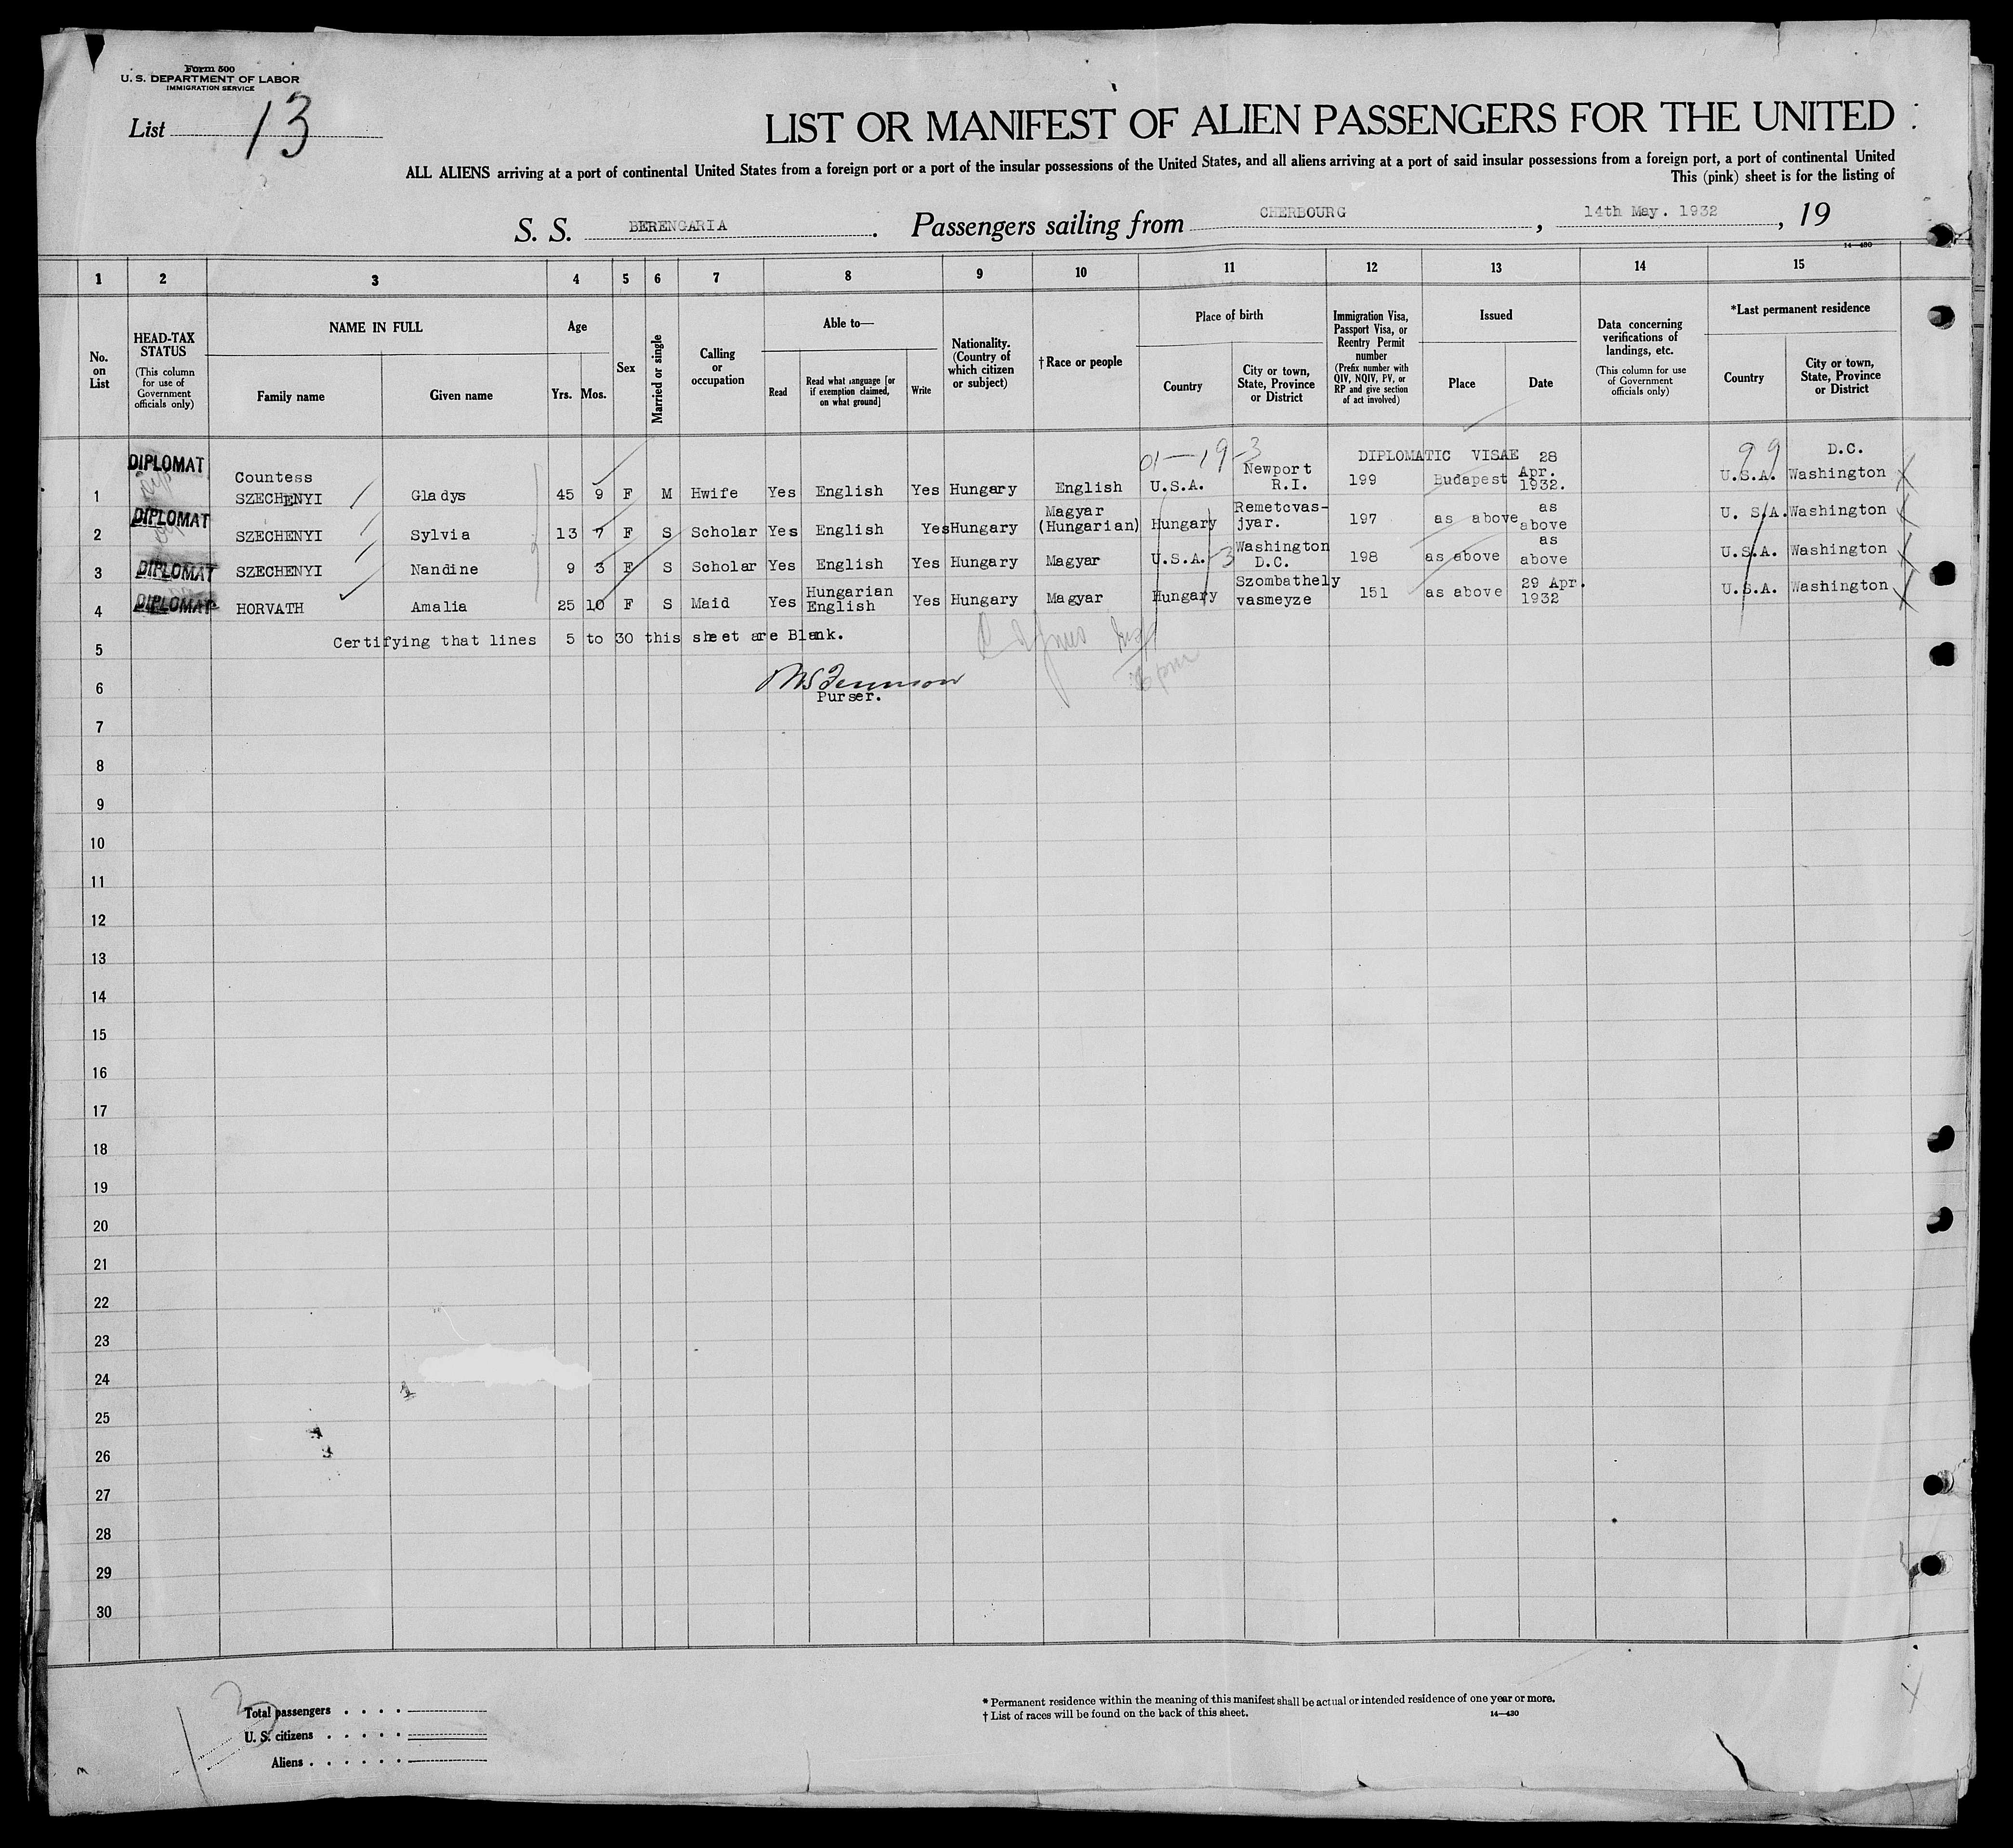 Form 500
U. S. DEPARTMENT OF LABOR
IMMIGRATION SERVICE
List 13
LIST OR MANIFEST OF ALIEN PASSENGERS FOR THE UNITED
ALL ALIENS arriving at a port of continental United States from a foreign port or a port of the insular possessions of the United States, and all aliens arriving at a port of said insular possessions from a foreign port, a port of continental United
This (pink) sheet is for the listing of
S. S. BERENGARIA. Passengers sailing from CHERBOURG, 14th May. 1932, 19
14—430
1 2 3 4 5 6 7 8 9 10 11 12 13 14 15
No. on List
HEAD-TAX STATUS
(This column for use of Government officials only)
NAME IN FULL
Family name
Given name
Age
Yrs. Mos.
Sex
Married or single
Calling or occupation
Able to—
Read
Read what language [or if exemption claimed, on what ground]
Write
Nationality. (Country of which citizen or subject)
† Race or people
Place of birth
Country
City or town, State, Province or District
Immigration Visa, Passport Visa, or Reentry Permit number
(Prefix number with QIV, NQIV, PV, or RP and give section of act involved)
Issued
Place
Date
Data concerning verifications of landings, etc.
(This column for use of Government officials only)
*Last permanent residence
Country
City or town, State, Province or District
01—19-3
DIPLOMATIC VISAE
99
1 DIPLOMAT Countess SZECHENYI Gladys 45 9 F M Hwife Yes English Yes Hungary English U.S.A. Newport R.I. 199 Budapest 28 Apr. 1932. U.S.A. Washington D.C.
2 DIPLOMAT SZECHENYI Sylvia 13 7 F S Scholar Yes English Yes Hungary Magyar (Hungarian) Hungary Remetcvas-jyar. 197 as above as above U. S.A. Washington
3 DIPLOMAT SZECHENYI Nandine 9 3 F S Scholar Yes English Yes Hungary Magyar U.S.A. -3 Washington D.C. 198 as above as above U.S.A. Washington
4 DIPLOMAT HORVATH Amalia 25 10 F S Maid Yes Hungarian English Yes Hungary Magyar Hungary Szombathely vasmeyze 151 as above 29 Apr. 1932 U.S.A. Washington
Certifying that lines 5 to 30 this sheet are Blank.
5
6
Purser.
7
8
9
10
11
12
13
14
15
16
17
18
19
20
21
22
23
24
25
26
27
28
29
30
Total passengers . . . .
U. S. citizens . . . . .
Aliens . . . . . .
* Permanent residence within the meaning of this manifest shall be actual or intended residence of one year or more.
† List of races will be found on the back of this sheet.
14—430